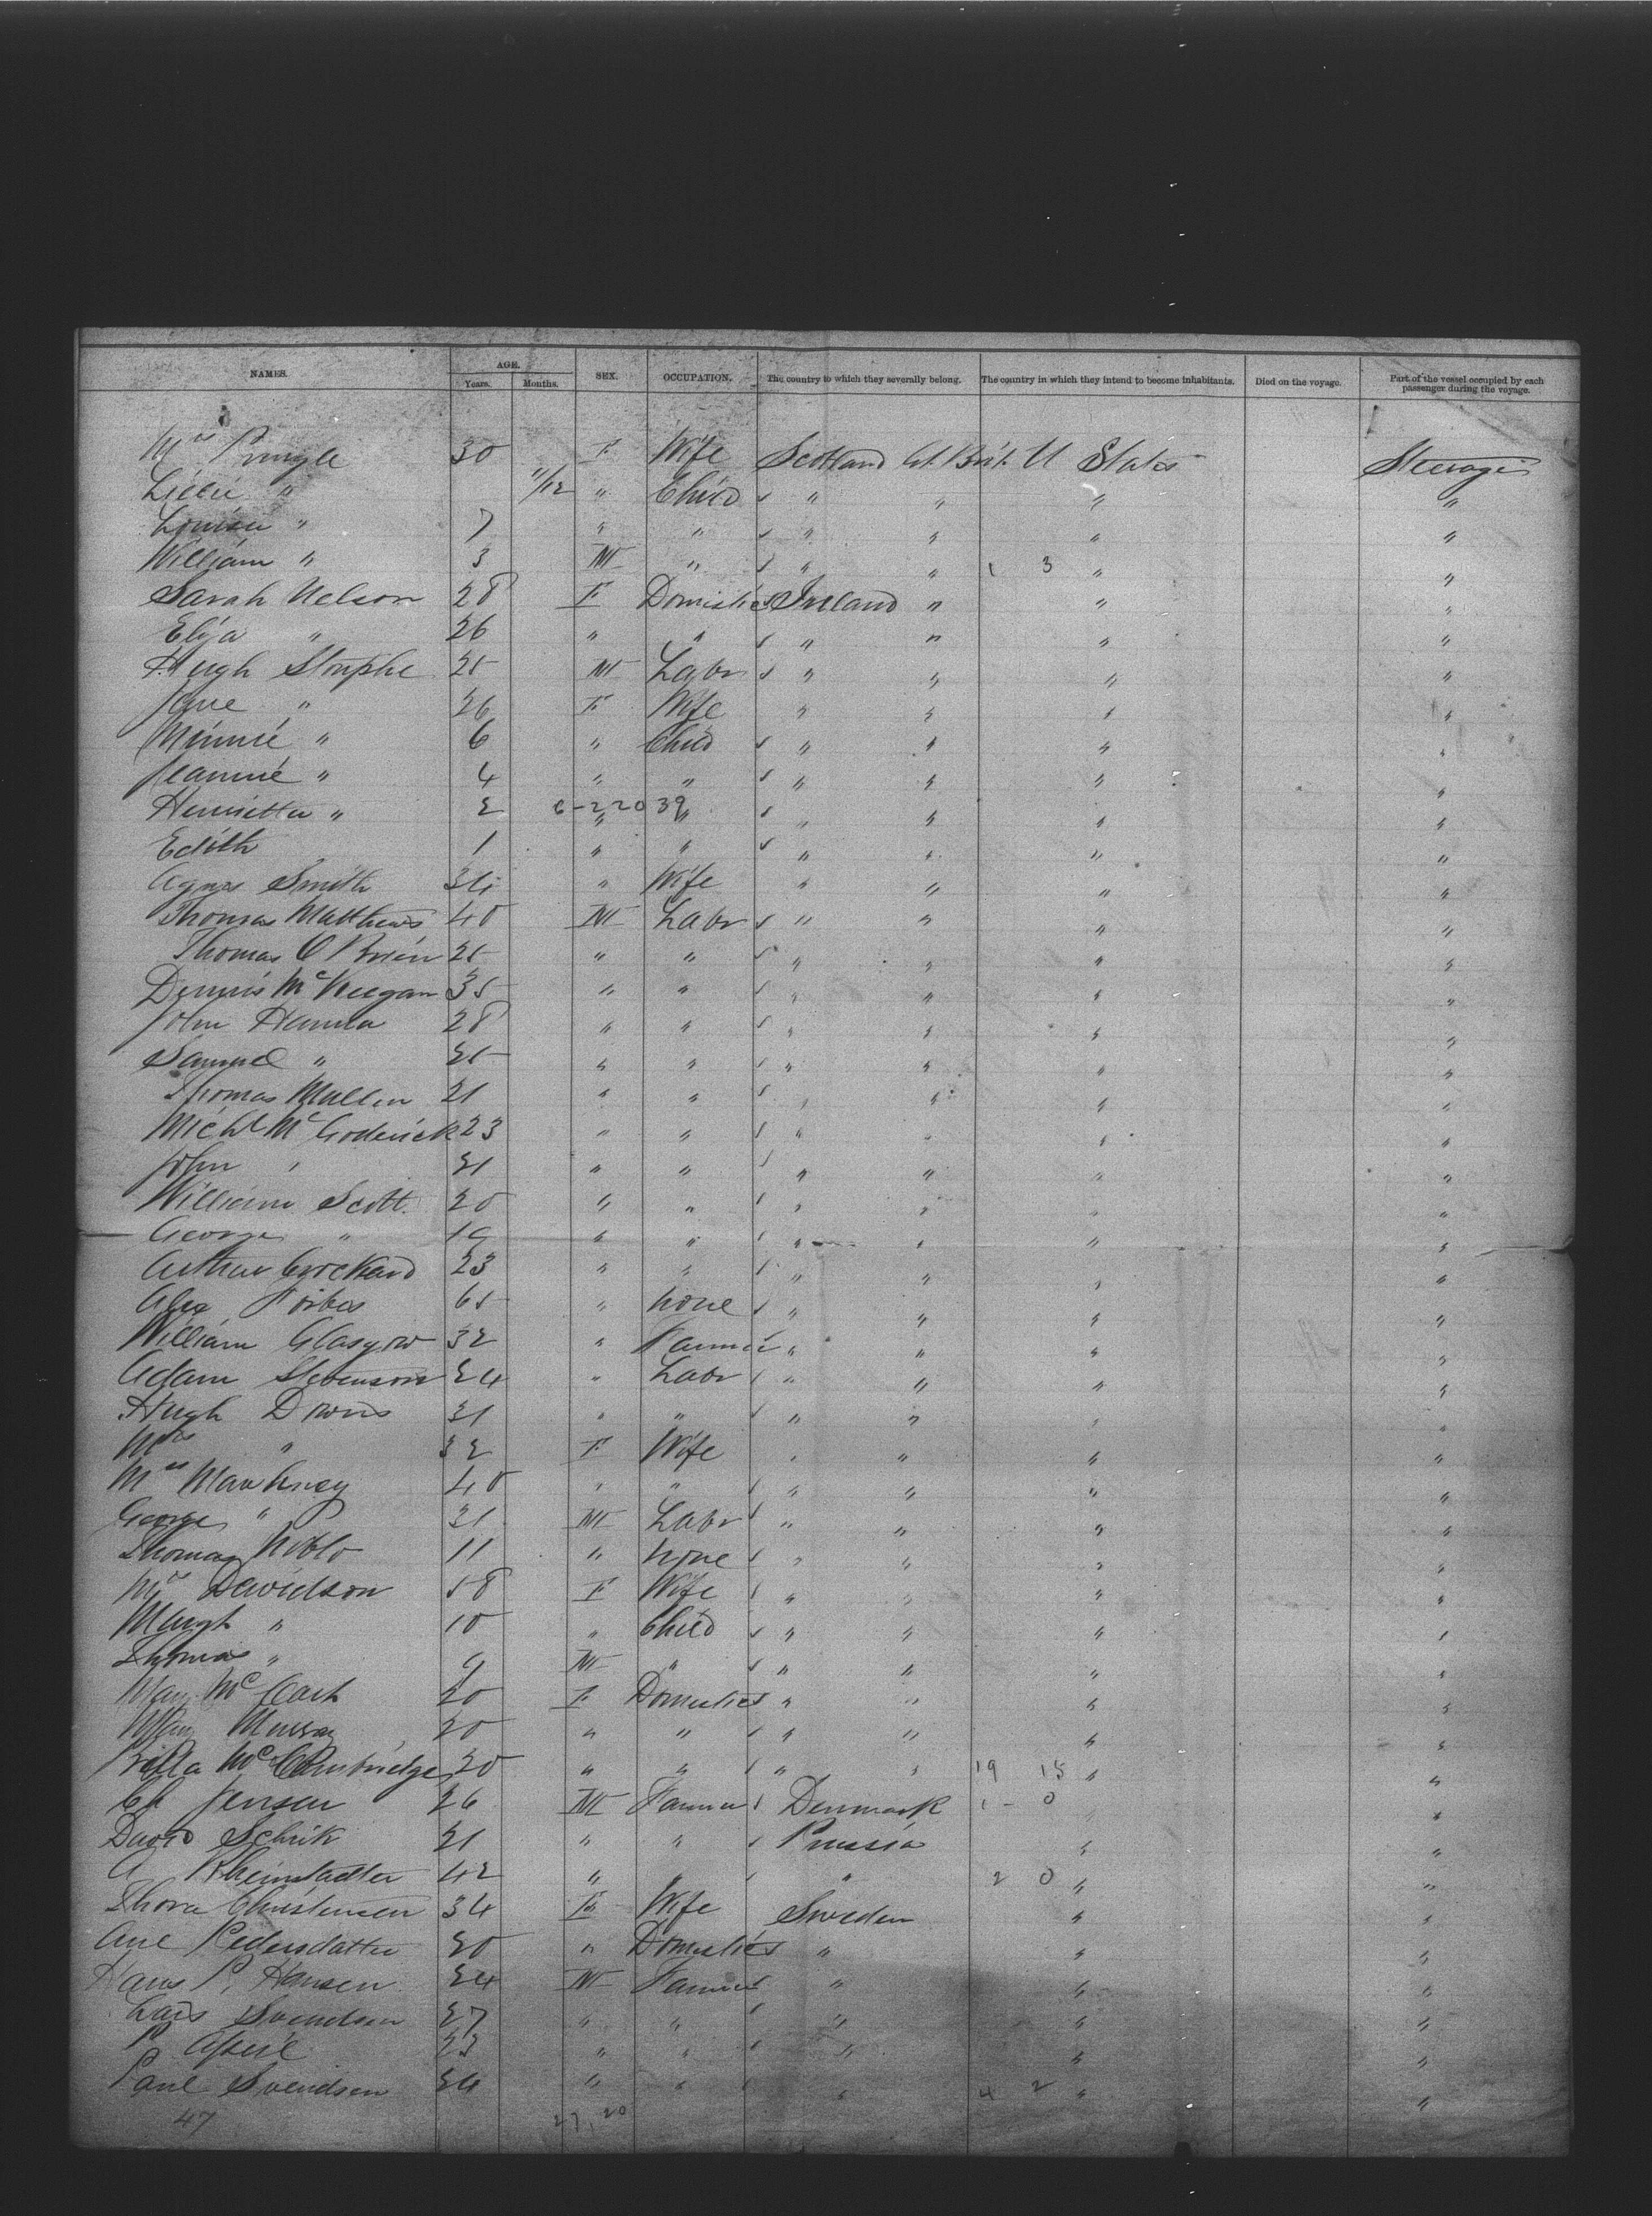 NAMES. AGE. SEX. OCCUPATION. The country to which they severally belong. The country in which they intend to become inhabitants. Died on the voyage. Part of the vessel occupied by each passenger during the voyage.
Years. Months.
Mrs Pringle 30 F Wife Scotland Gt. Brit. U States Steerage
Lillie " 11/12 " Child " " " "
Louisa " 7 " " " " " "
William " 3 M " " " 1 3 " "
Sarah Nelson 28 F Domestics Ireland " " "
Eliza " 26 " " " " " "
Hugh Stouphe 25 M Labr " " " "
Jane " 26 F Wife " " " "
Minnie " 6 " Child " " " "
Jeannie " 4 " " " " " "
Henrietta " 2 6-22039 " " " " " "
Edith 1 " " " " " "
Agnes Smith 34 " Wife " " " "
Thomas Matthews 40 M Labr " " " "
Thomas O'Brien 25 " " " " " "
Dennis McKeegan 35 " " " " " "
John Hanna 28 " " " " " "
Samuel " 25 " " " " " "
Thomas Mullen 21 " " " " " "
Michl McGoderick 23 " " " " " "
John " 21 " " " " " "
William Scott. 20 " " " " " "
George " 19 " " " " " "
Arthur Crockard 23 " " " " " "
Alex Forbes 65 " None " " " "
William Glasgow 32 " Farmer " " " "
Adam Stevenson 24 " Labr " " " "
Hugh Downs 31 " " " " " "
Mrs " 32 F Wife " " " "
Mrs Mawhney 40 " " " " " "
George " 21 M Labr " " " "
Thomas Noble 11 " None " " " "
Mrs Davidson 58 F Wife " " " "
Margt " 10 " Child " " " "
Thomas " 9 M " " " " "
Mary McCart 20 F Domestics " " " "
Mary Murray 20 " " " " " "
McCambridge 20 " " " " 19 15 " "
Jensen 26 M Farmer Denmark 1 - 0 " "
David Schrik 21 " " Prussia " "
A Rheinstadter 42 " " " 2 0 " "
Thora Christensen 34 F Wife Sweden " "
Ane Pedersdatter 20 " Domestics " " "
Hans P. Hansen 24 M Farmer " " "
Lars Svendsen 27 " " " " "
P 23 " " " " "
Paul Svendsen 24 " " " 4 2 " "
47 27, 20